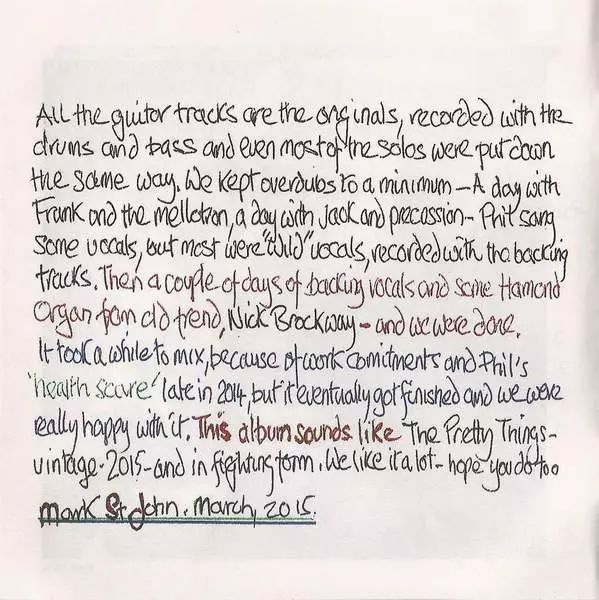 All the guitor tracks are the originals, recorded with the
drums and bass and even most of the solos were put down
the same way. We kept overdubs to a minimum - A day with
Frank and the mellotron, a day with Jack and precassion - Phil sang
some vocals, but most were "wild" vocals, recorded with the backing
tracks. Then a couple of days of backing vocals and some Hamond
Organ from old freind, Nick Brockway - and we were done.
It took a while to mix, because of work comitments and Phil's
'health scare' late in 2014, but it eventually got finished and we were
really happy with it. This album sounds like The Pretty Things -
vintage - 2015 - and in fighting form. We like it a lot - hope you do too
Mark St John. March, 2015.